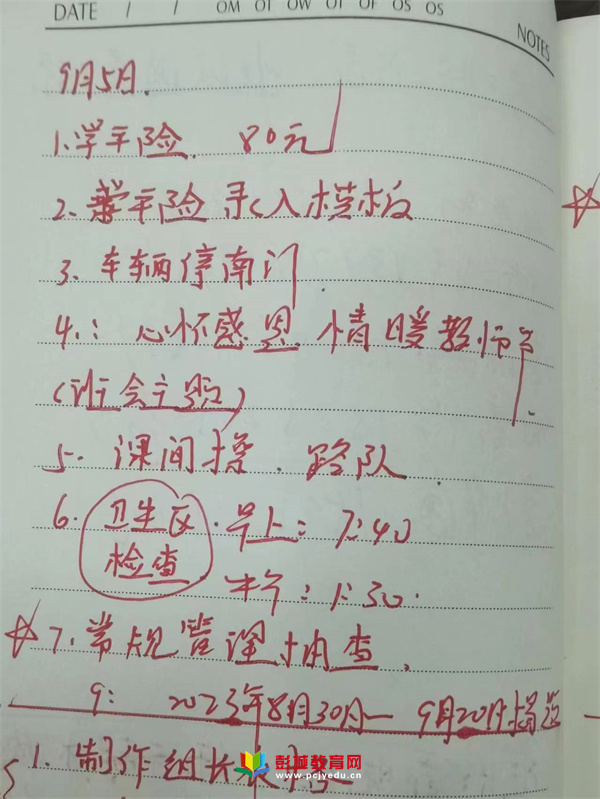 DATE / / OM OT OW OT OF OS OS
NOTES
9月5日.
1.学平险. 80元
2.学平险录入模板
3.车辆停南门.
4.:心怀感恩.情暖教师节.
(班会主题)
5.课间操.路队.
6.卫生区检查.早上:7:40
中午:1:30.
7.常规管理抽查.
9: 2023年8月30日—9月20日
1.制作组长
彭城教育网
www.pcjyedu.cn